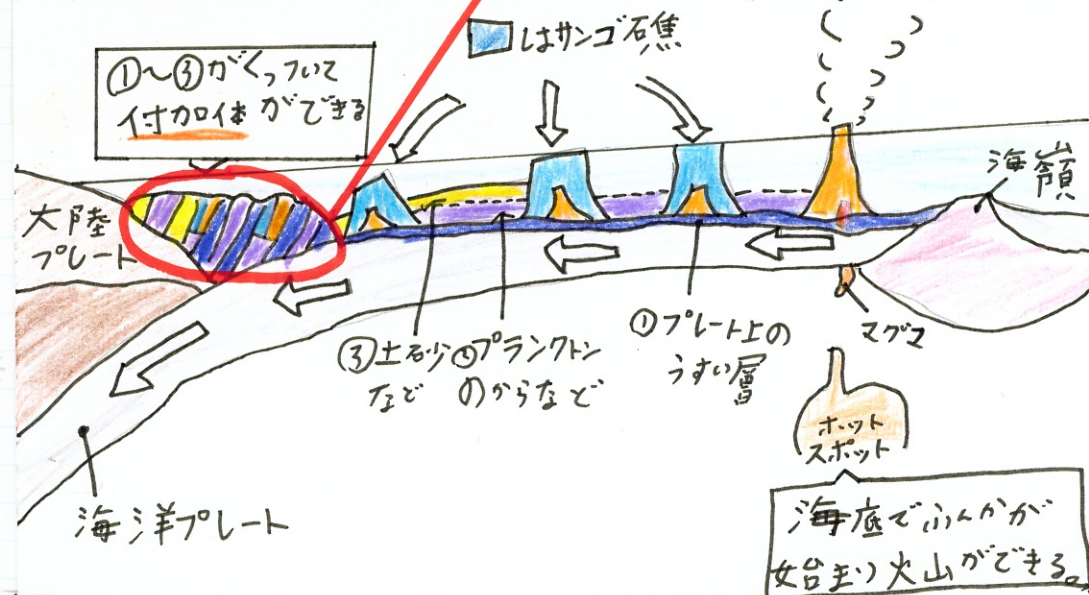 はサンゴ石焦
①〜③がくっついて
付加体ができる
海嶺
大陸
プレート
③土砂
など
②プランクトン
のからなど
①プレート上の
うすい層
マグマ
ホット
スポット
海洋プレート
海底でふんかが
始まり火山ができる。